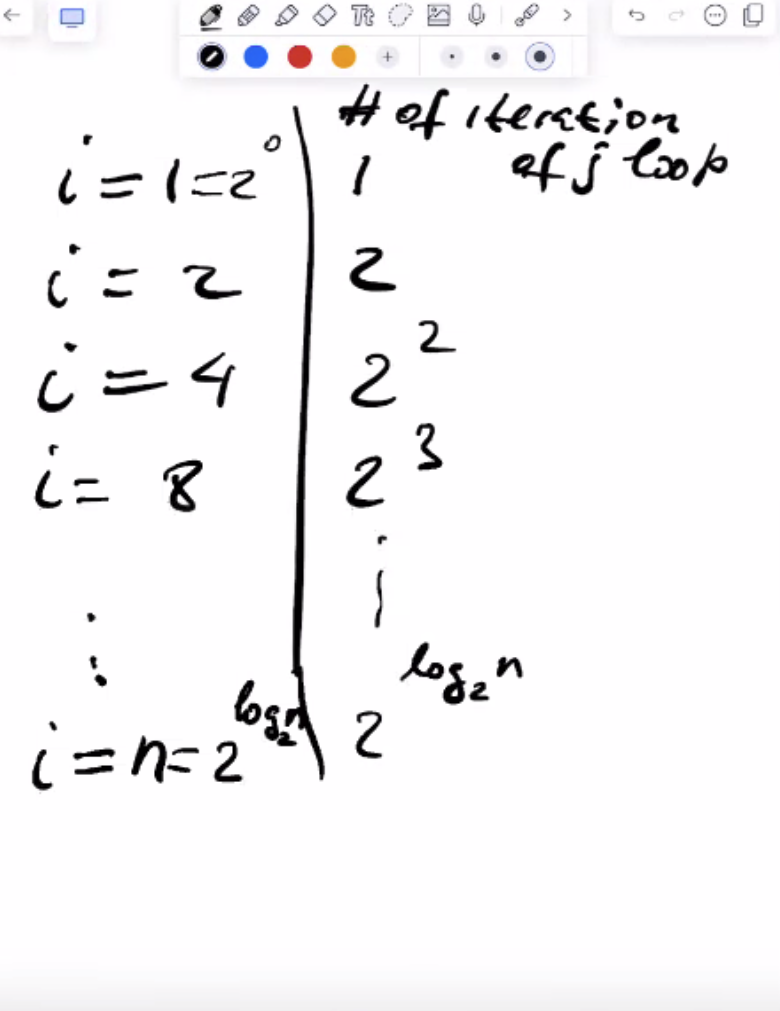 # of iteration
of j loop
i = 1 = 2⁰ 1
i = 2 2
i = 4 2²
i = 8 2³
⋮ ⋮
i = n = 2^log₂n 2^log₂n